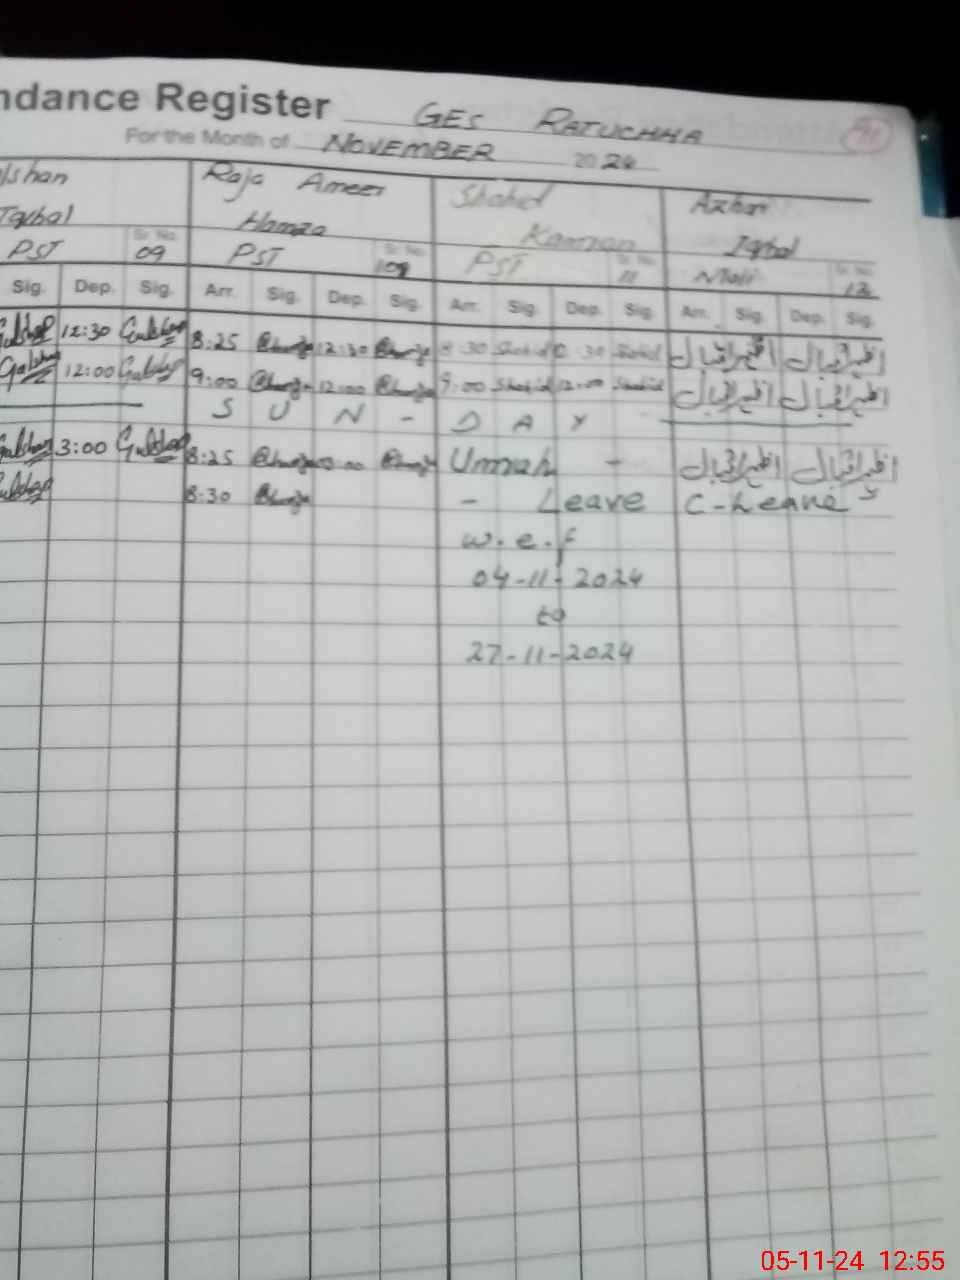 ndance Register GES RATUCHHA
For the Month of NOVEMBER 2024
lshan Raja Ameer Shahid Azhar
Iqbal Hamza Kamran Iqbal
PST Sr. No. 09 PST Sr. No. PST Sr. No. 11 Sr. No. 12
Sig. Dep. Sig. Arr. Sig. Dep. Sig. Arr. Sig. Dep. Sig. Arr. Sig. Dep. Sig.
12:30 Gulshan 8:25 12:30 8:30 Shahid 12:30 Shahid اظہر اقبال اظہر اقبال
Gulshan 12:00 Gulshan 9:00 12:00 9:00 Shahid 12:00 Shahid اظہر اقبال اظہر اقبال
S U N - D A Y
Gulshan 3:00 Gulshan 8:25 Umrah - اظہر اقبال اظہر اقبال
8:30 - Leave C-Leave
w.e.f
04-11-2024
to
27-11-2024
05-11-24 12:55